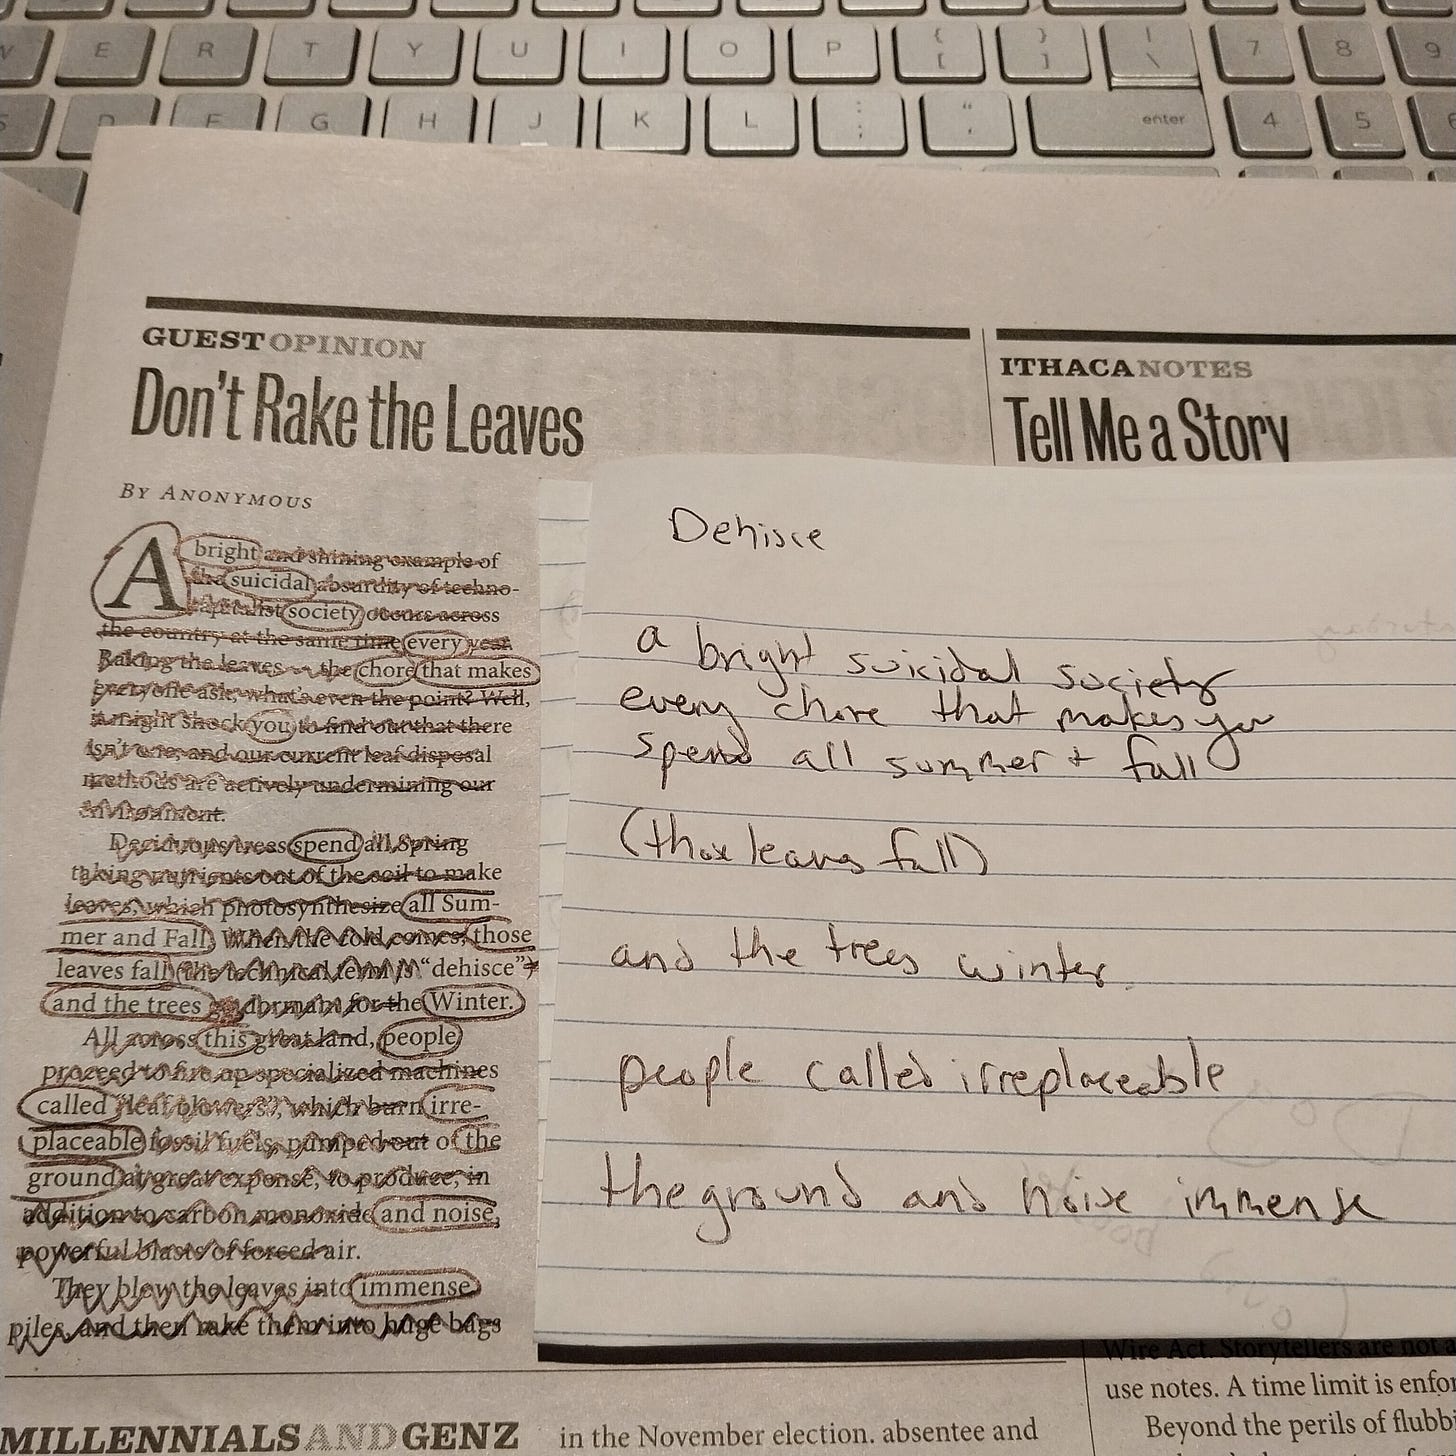 W E R T Y U I O P { [ } ] | \ 7 8 9
S D F G H J K L : ; " ' enter 4 5 6
GUESTOPINION
Don't Rake the Leaves
BY ANONYMOUS
A bright and shining example of
the suicidal absurdity of techno-
capitalist society occurs across
the country at the same time every year.
Raking the leaves — the chore that makes
everyone ask, what's even the point? Well,
it might shock you to find out that there
isn't one, and our current leaf disposal
methods are actively undermining our
environment.
Deciduous trees spend all Spring
taking nutrients out of the soil to make
leaves, which photosynthesize all Sum-
mer and Fall. When the cold comes, those
leaves fall (the technical term is "dehisce")
and the trees go dormant for the Winter.
All across this great land, people
proceed to fire up specialized machines
called "leaf blowers", which burn irre-
placeable fossil fuels, pumped out of the
ground at great expense, to produce, in
addition to carbon monoxide and noise,
powerful blasts of forced air.
They blow the leaves into immense
piles, and then rake them into huge bags
ITHACANOTES
Tell Me a Story
Dehisce
a bright suicidal society
every chore that makes you
spend all summer + fall
(those leaves fall)
and the trees winter.
people called irreplaceable
the ground and noise immense
Wire Act. Storytellers are not a
use notes. A time limit is enfor
Beyond the perils of flubbi
MILLENNIALSANDGENZ
in the November election. absentee and